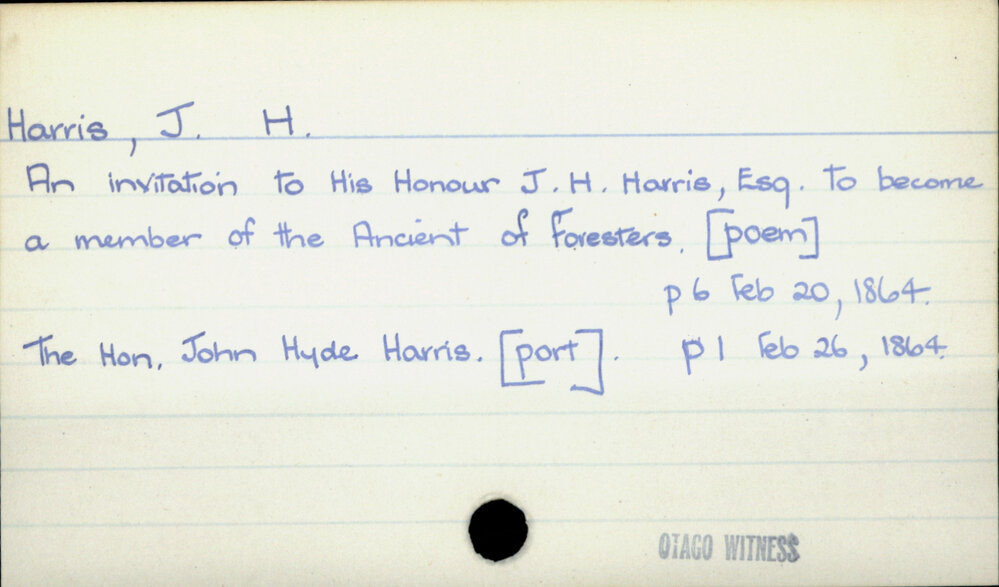 Harris, J. H.
An invitation to His Honour J. H. Harris, Esq. to become
a member of the Ancient of Foresters. [poem]
p 6 Feb 20, 1864.
The Hon. John Hyde Harris. [port]. p 1 Feb 26, 1864.
OTAGO WITNESS